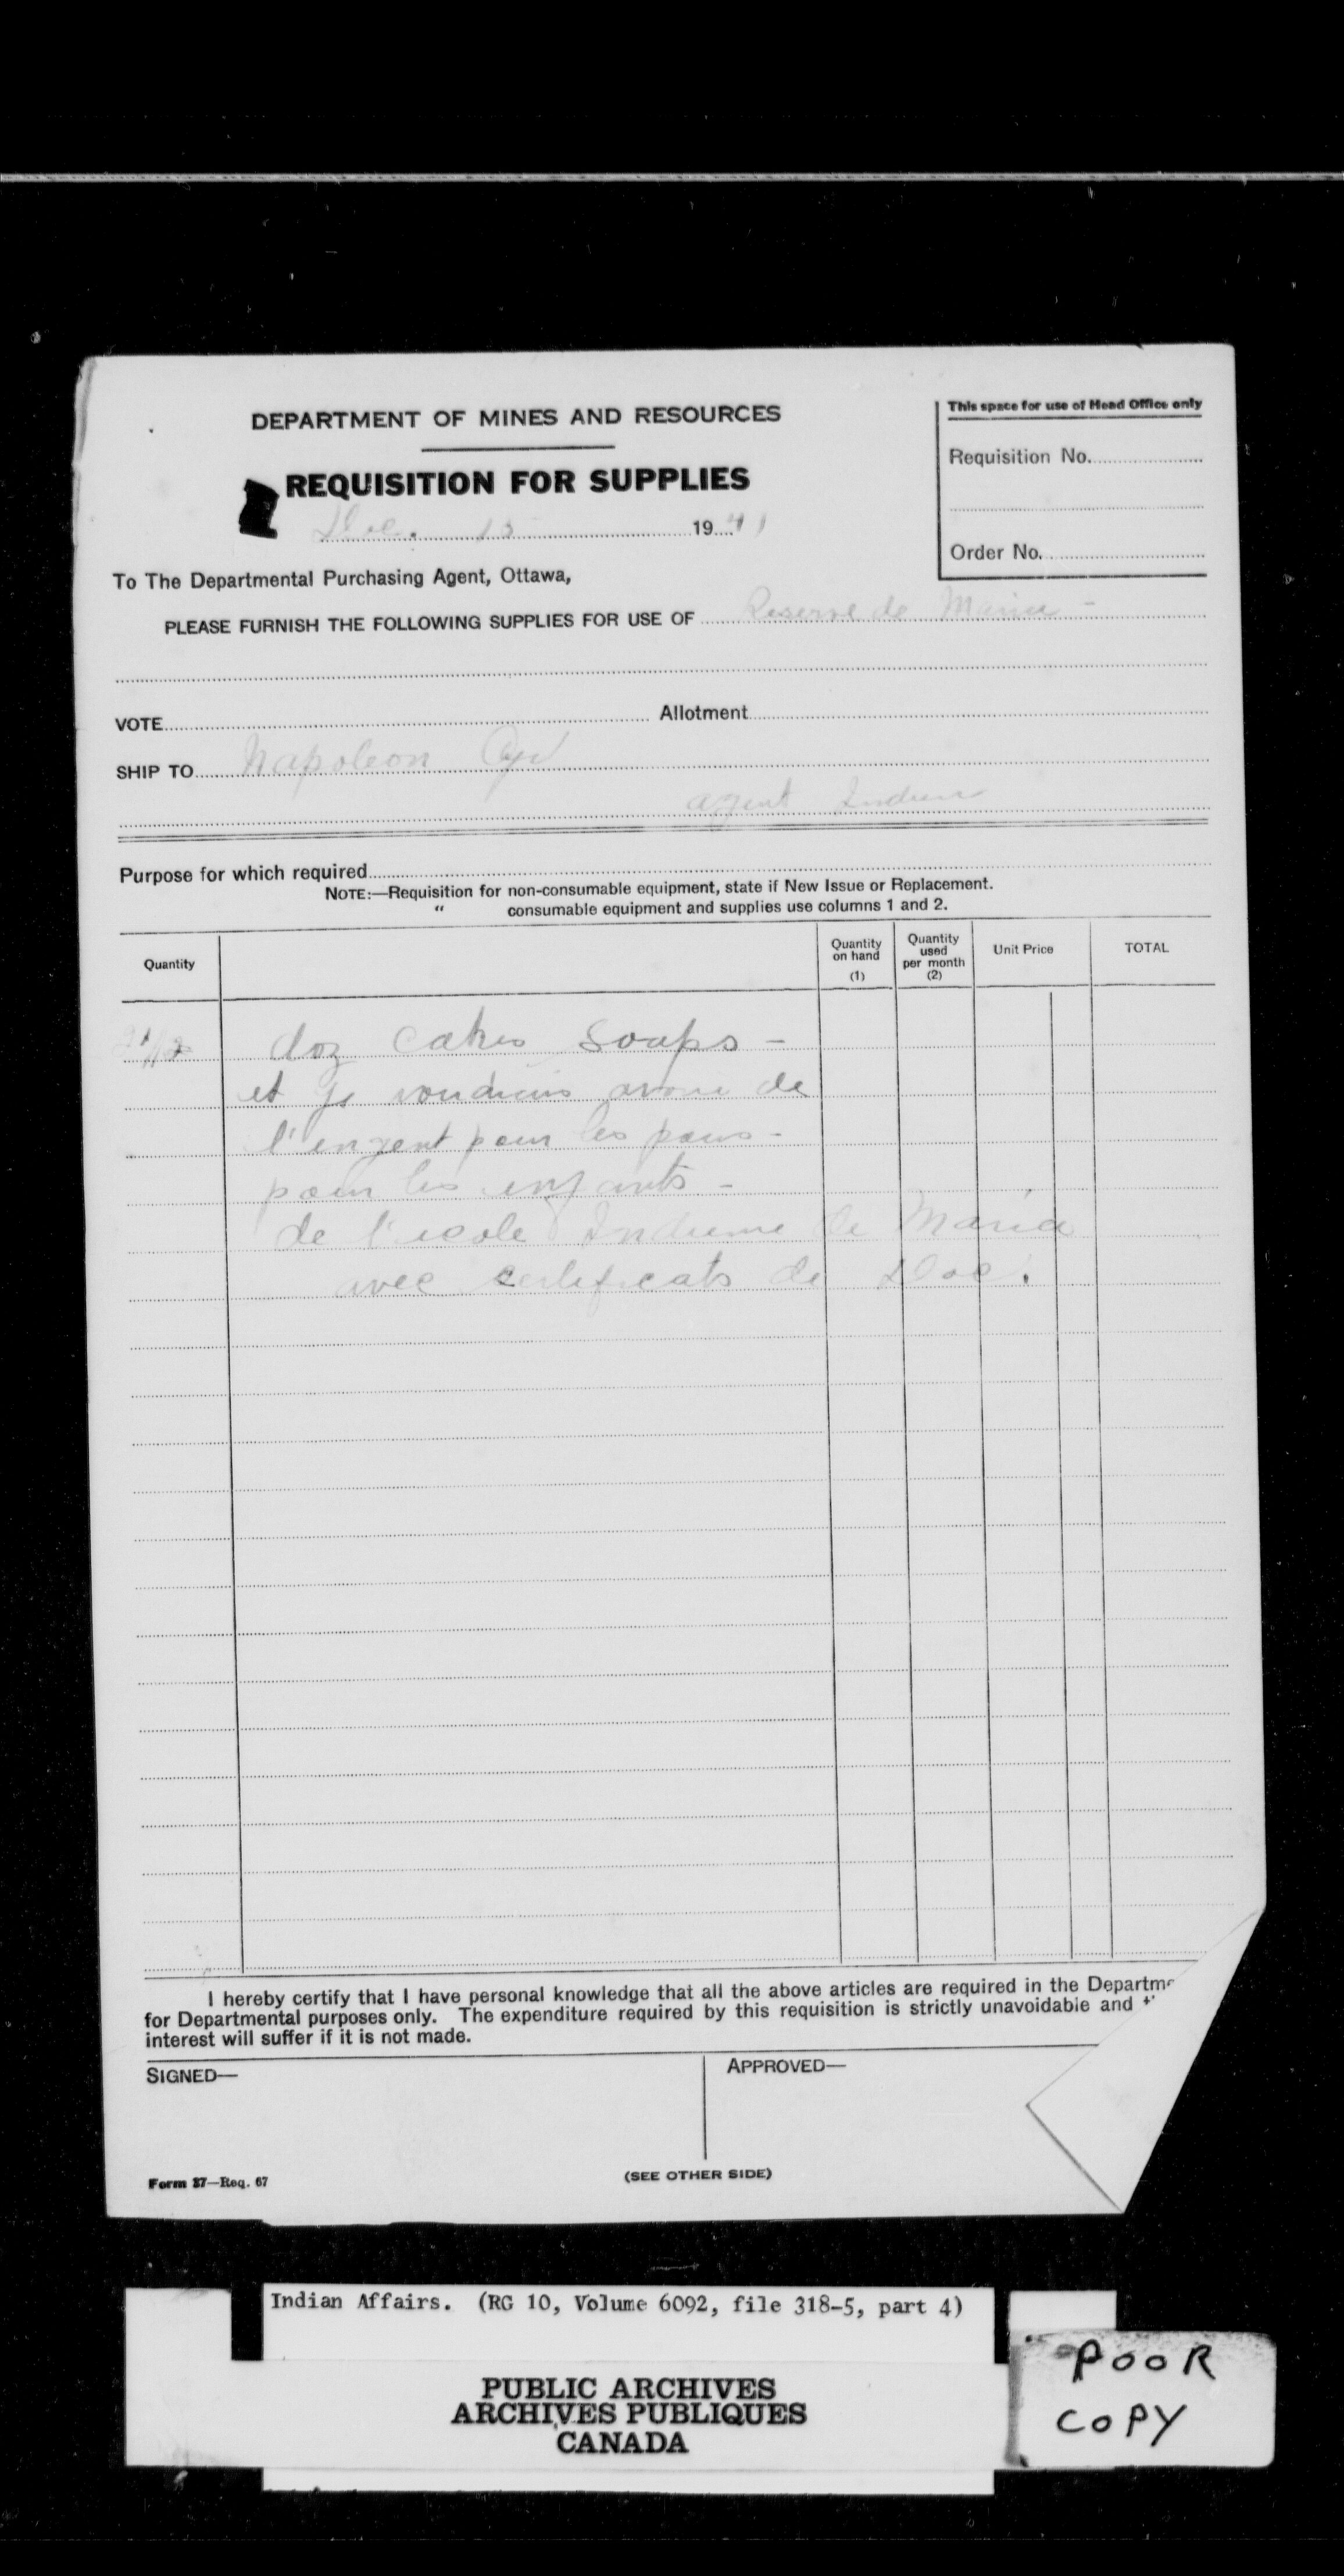 DEPARTMENT OF MINES AND RESOURCES
REQUISITION FOR SUPPLIES
Dec. 15 1941
This space for use of Head Office only
Requisition No.
Order No.
To The Departmental Purchasing Agent, Ottawa,
PLEASE FURNISH THE FOLLOWING SUPPLIES FOR USE OF Reserve de Maria -
VOTE Allotment
SHIP TO Napoleon Cyr
agent Indien
Purpose for which required
NOTE:—Requisition for non-consumable equipment, state if New Issue or Replacement.
" consumable equipment and supplies use columns 1 and 2.
Quantity Quantity on hand (1) Quantity used per month (2) Unit Price TOTAL
doz Cakes Soaps -
et je voudrais avoir de
l'argent pour les
pour les enfants -
de l'ecole Indienne de Maria
avec certificats de Dec.
I hereby certify that I have personal knowledge that all the above articles are required in the Departme
for Departmental purposes only. The expenditure required by this requisition is strictly unavoidable and
interest will suffer if it is not made.
SIGNED—
APPROVED—
Form 87—Req. 67
(SEE OTHER SIDE)
Indian Affairs. (RG 10, Volume 6092, file 318-5, part 4)
PUBLIC ARCHIVES
ARCHIVES PUBLIQUES
CANADA
POOR
COPY